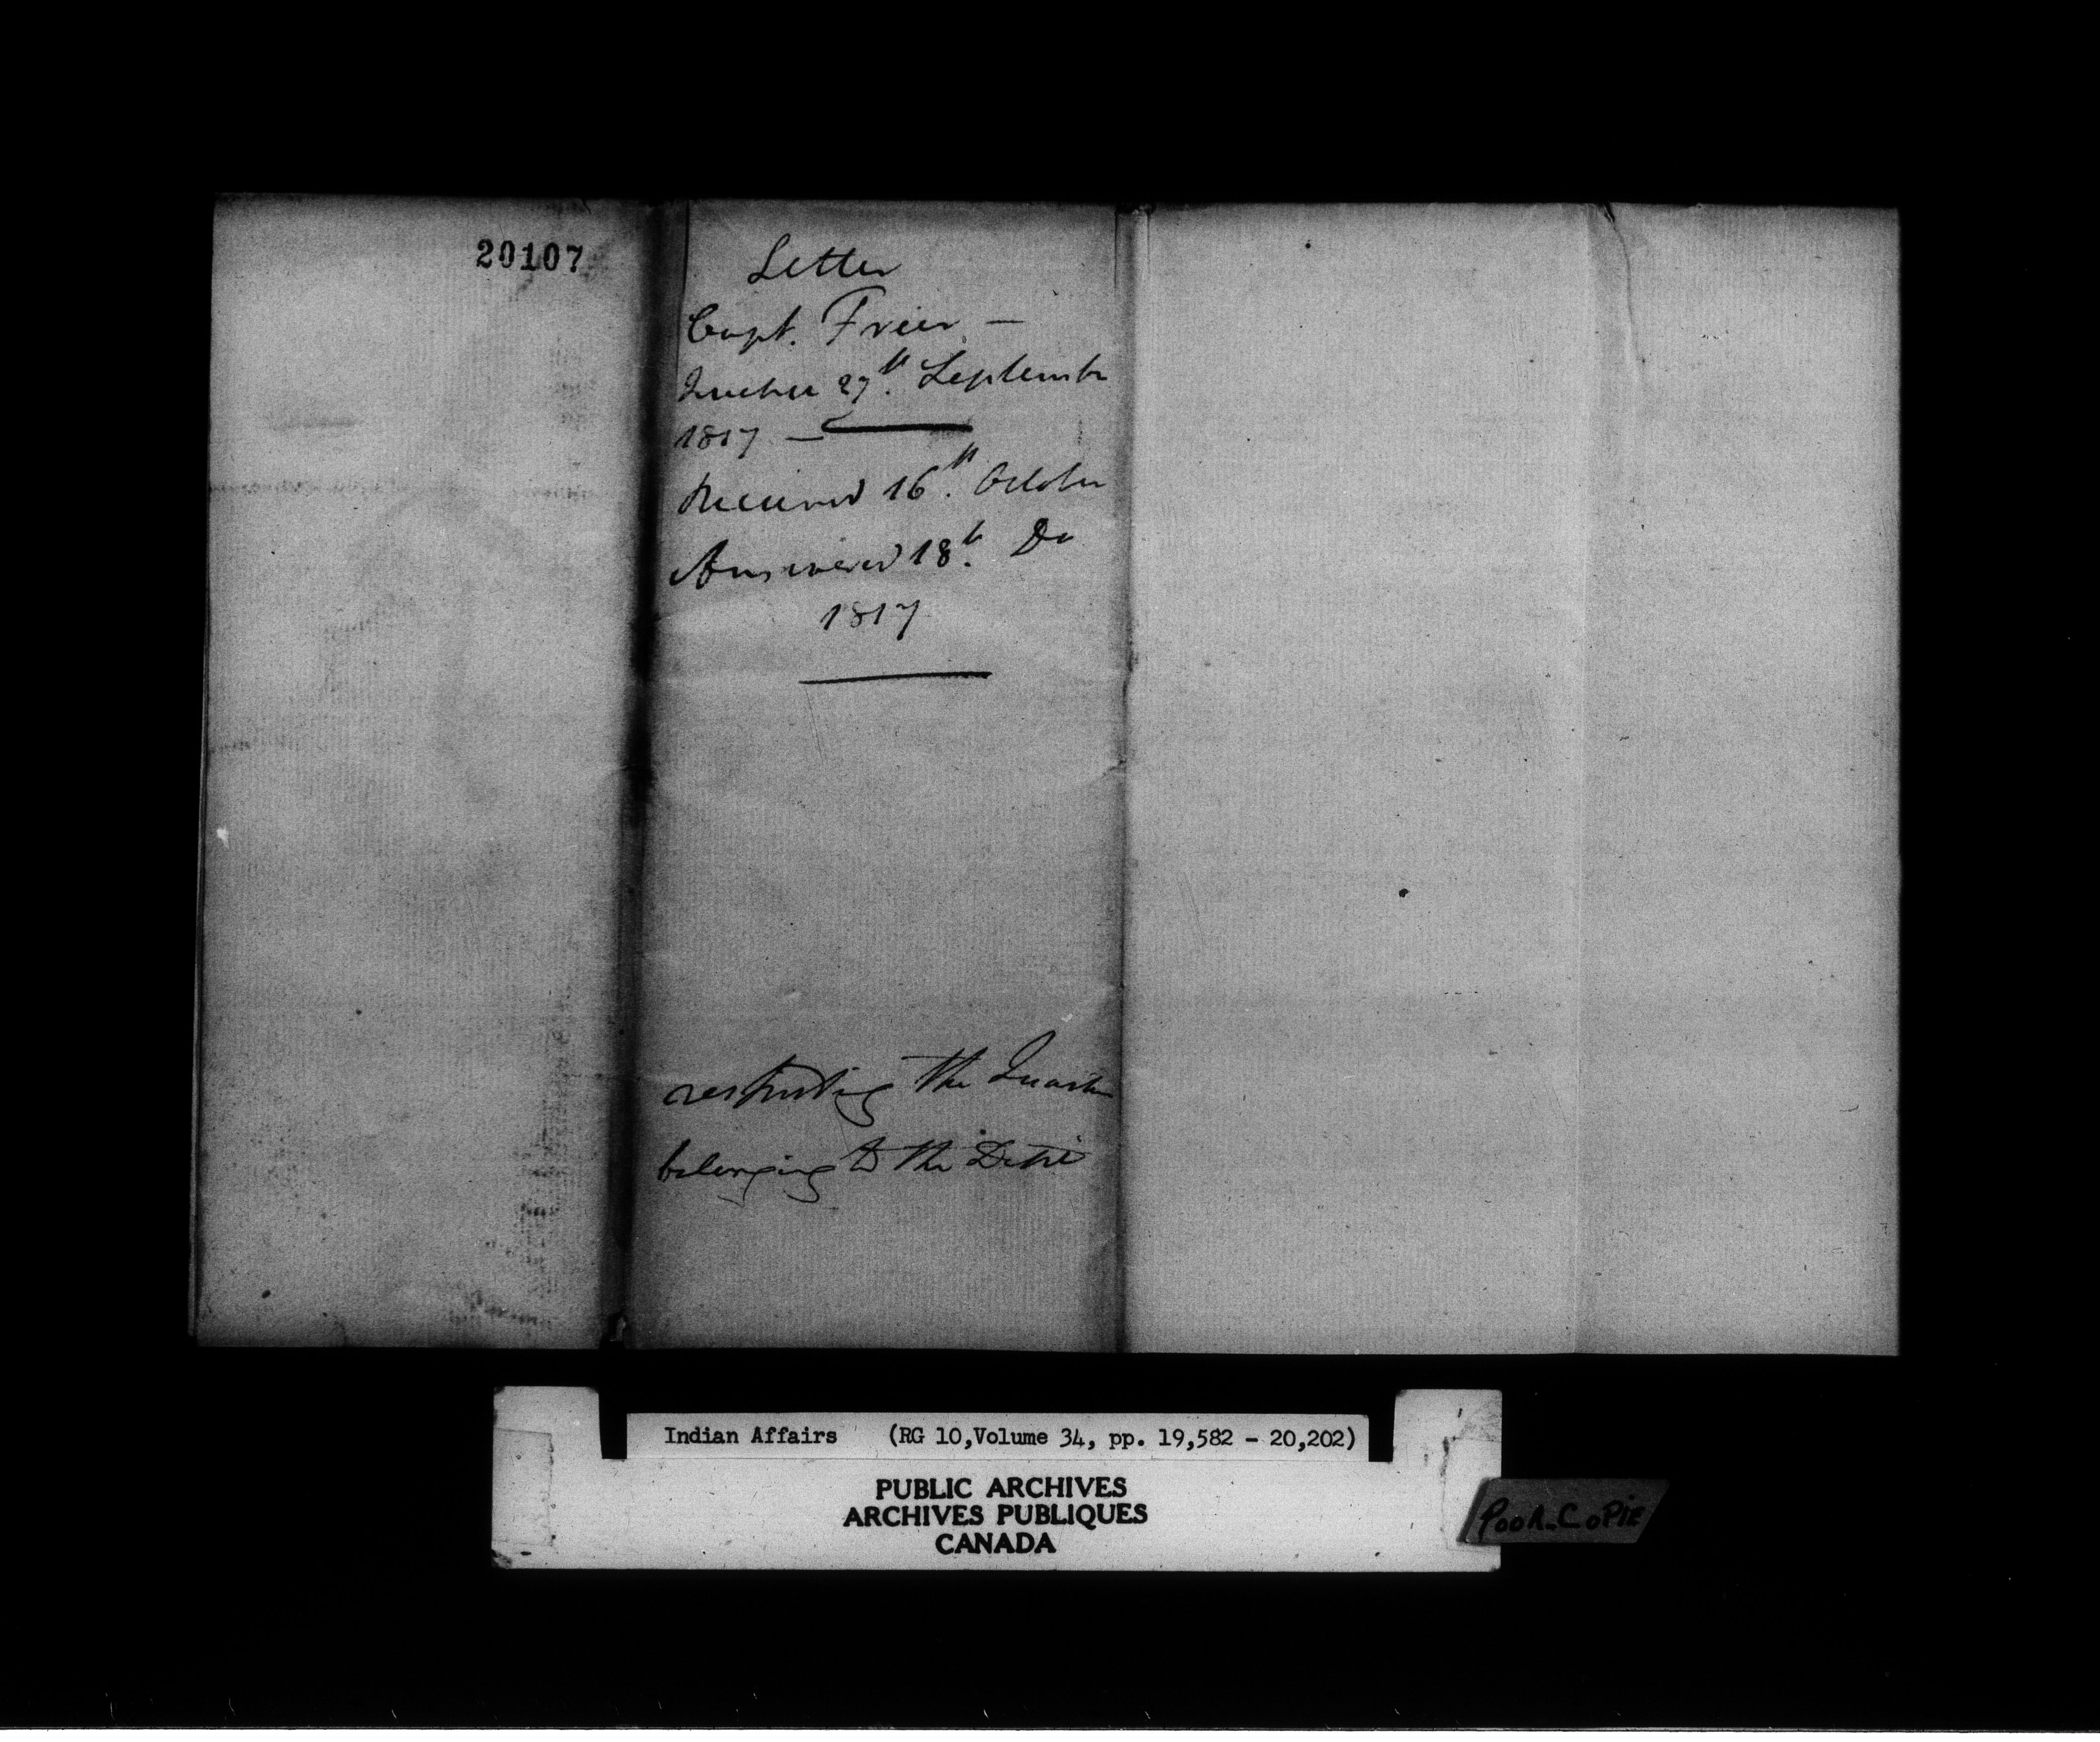 20107
Letter
Capt. Freer —
Quebec 27th. September
1817 —
Received 16th. October
Answered 18th. Do
1817
respecting the
belonging to the
Indian Affairs (RG 10,Volume 34, pp. 19,582 - 20,202)
PUBLIC ARCHIVES
ARCHIVES PUBLIQUES
CANADA
POOR COPIE